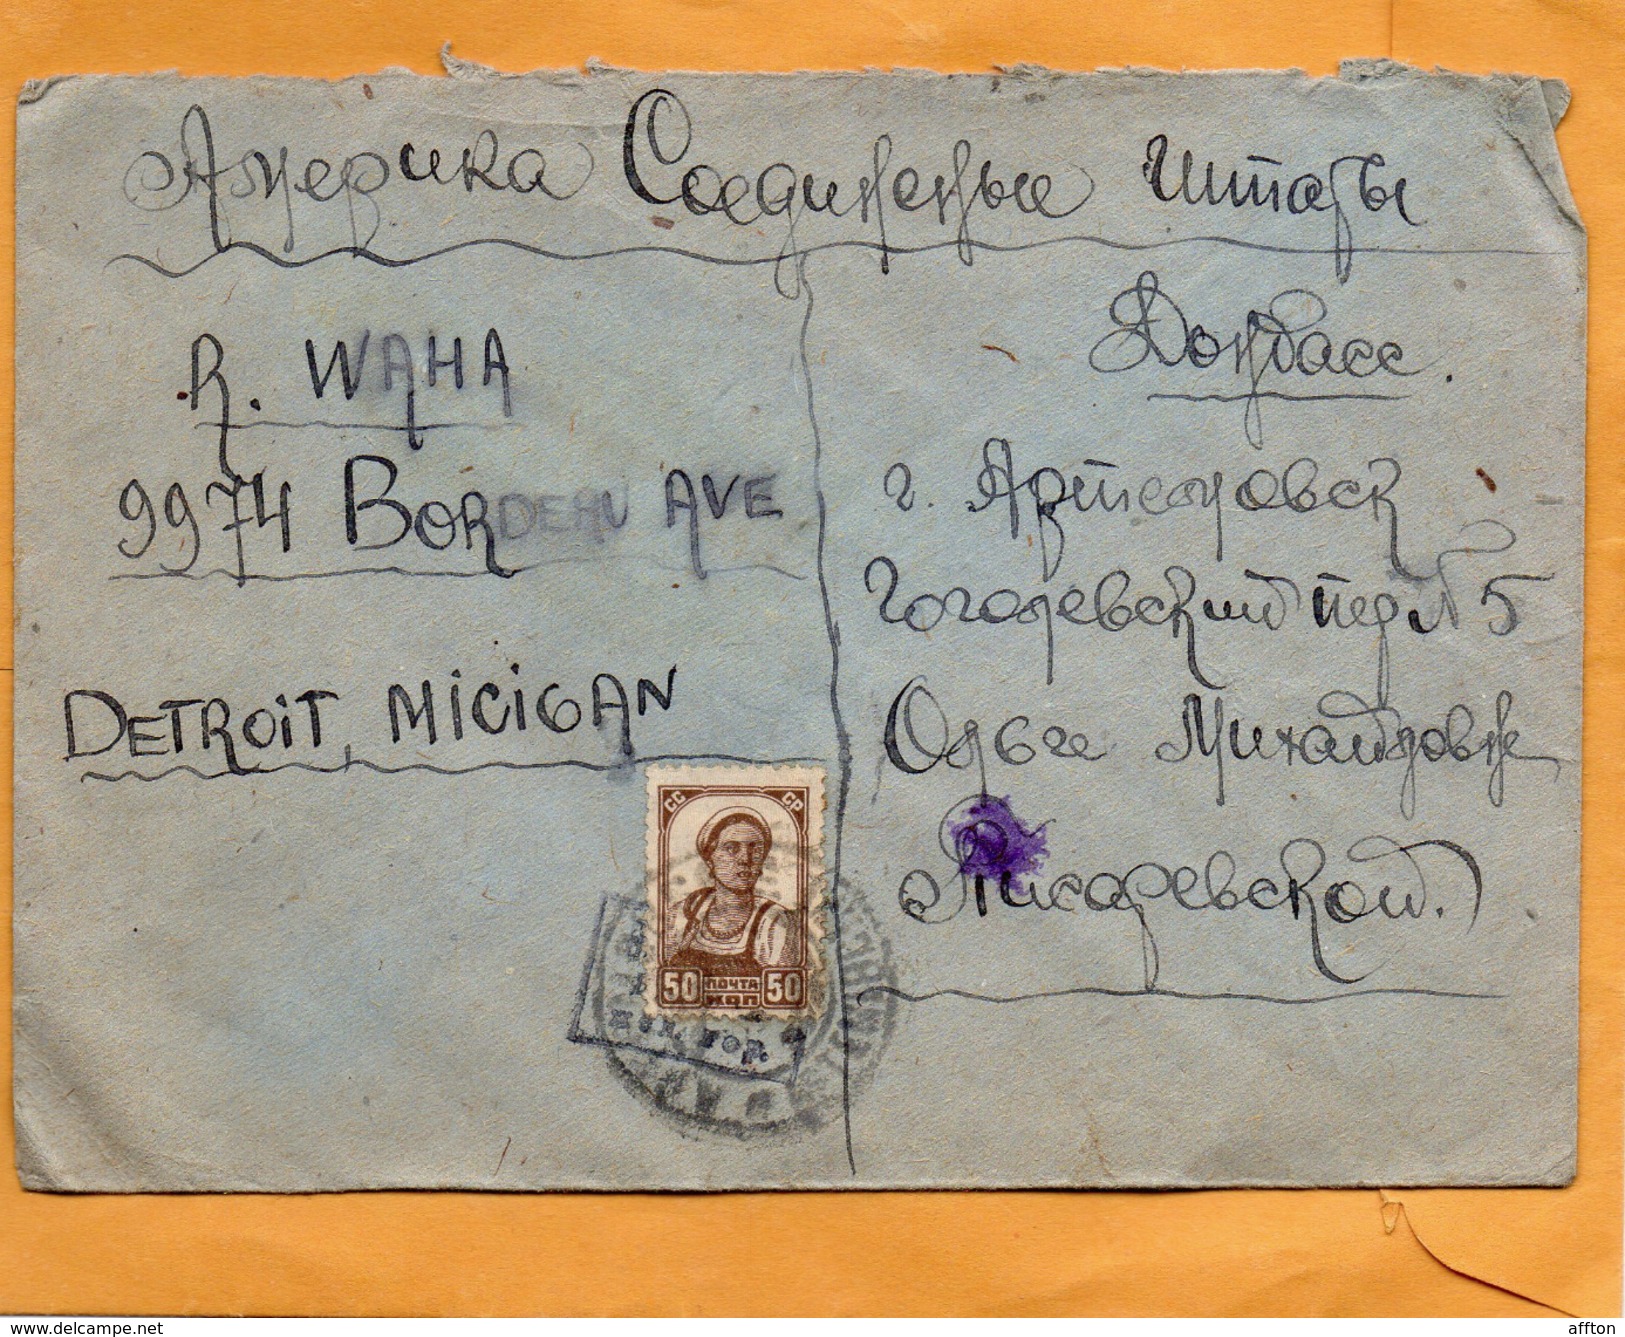 Америка Соединенные Штаты
R. WAHA
9974 BORDEAU AVE
DETROIT, MICIGAN
Донбасс.
г. Артемовск
Гоголевский пер № 5
Ольге Михайловне
Писаревской.
СС СР
50 ПОЧТА КОП 50
www.delcampe.net
affton